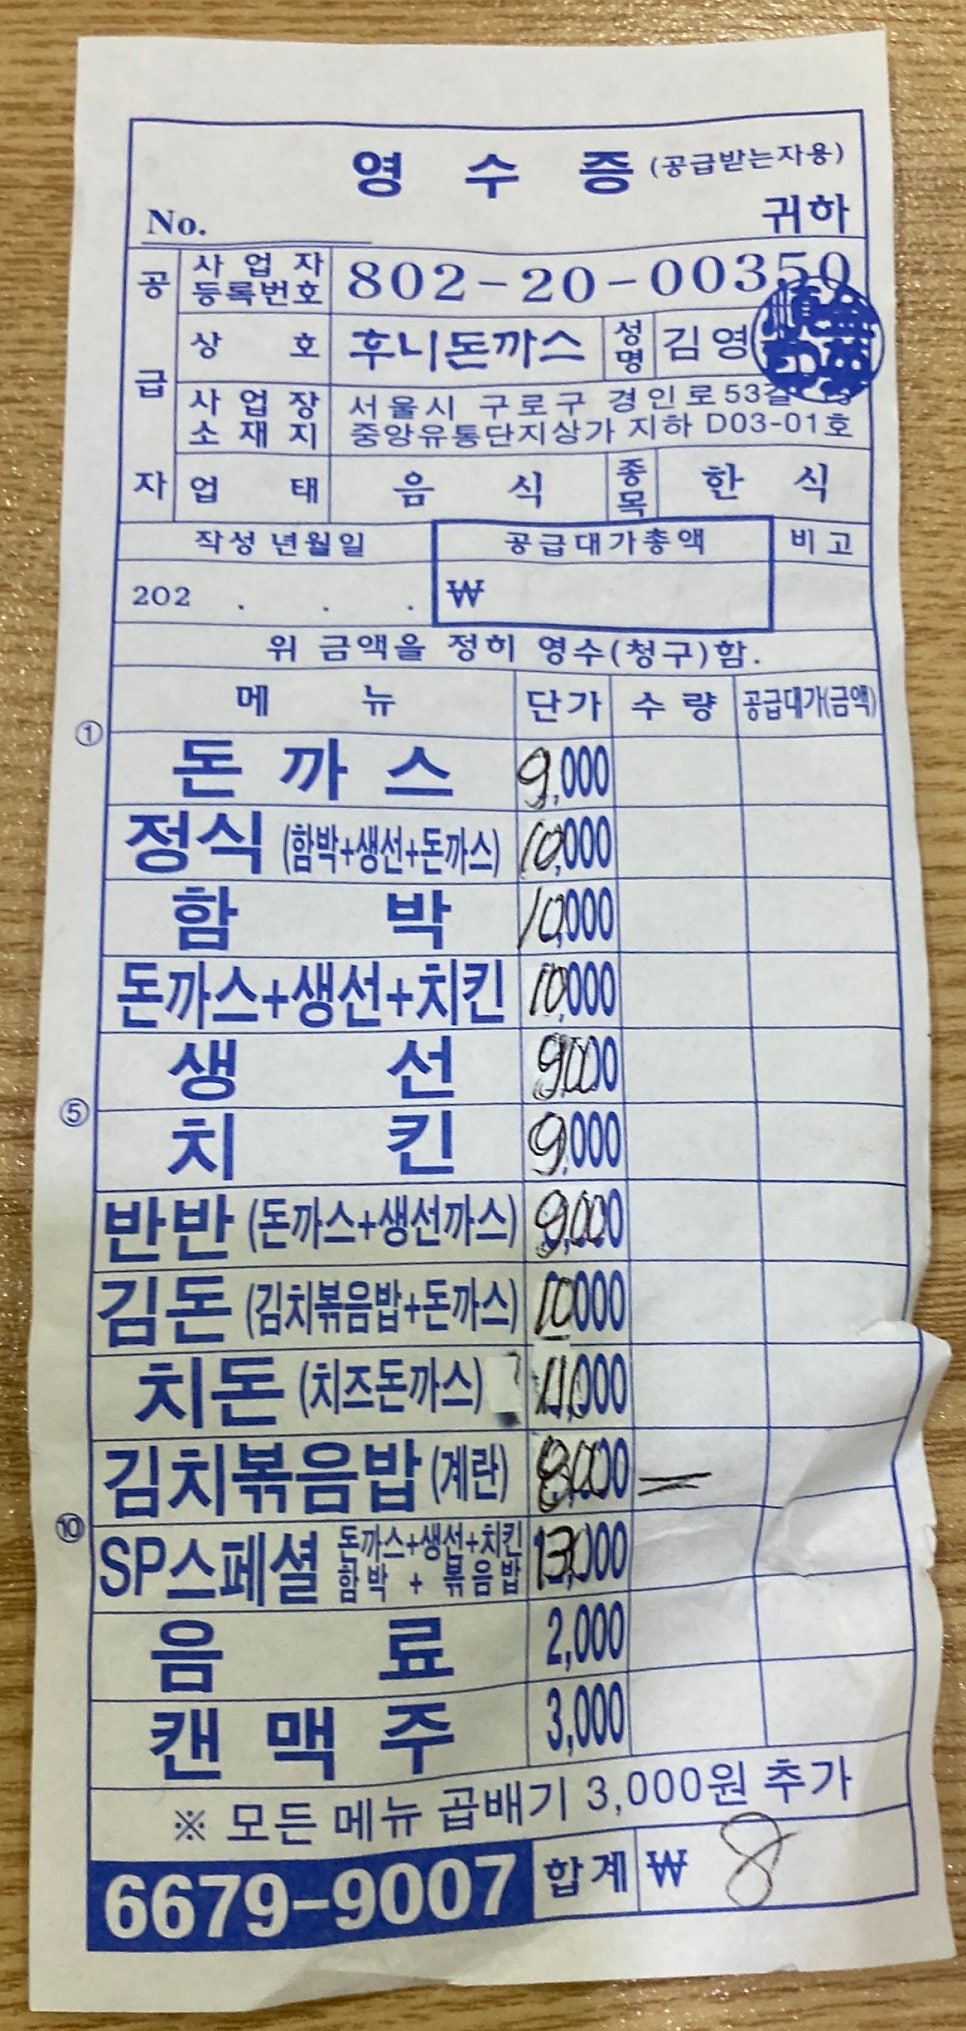 영 수 증 (공급받는자용)
No. 귀하
공급자
사업자등록번호 802-20-00350
상 호 후니돈까스 성명 김영
사업장소재지 서울시 구로구 경인로53길
중앙유통단지상가 지하 D03-01호
업 태 음 식 종목 한 식
작성 년월일 공급대가총액 비고
202 . . . ₩
위 금액을 정히 영수(청구)함.
메 뉴 단가 수 량 공급대가(금액)
① 돈 까 스 9,000
정식 (함박+생선+돈까스) 10,000
함 박 10,000
돈까스+생선+치킨 10,000
생 선 9,000
⑤ 치 킨 9,000
반반 (돈까스+생선까스) 9,000
김돈 (김치볶음밥+돈까스) 10,000
치돈 (치즈돈까스) 11,000
김치볶음밥 (계란) 8,000
⑩ SP스페셜 돈까스+생선+치킨 함박 + 볶음밥 13,000
음 료 2,000
캔 맥 주 3,000
※ 모든 메뉴 곱배기 3,000원 추가
6679-9007 합계 ₩ 8